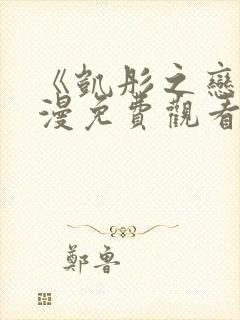 《凱彤之戀
漫免費觀看
鄭魯